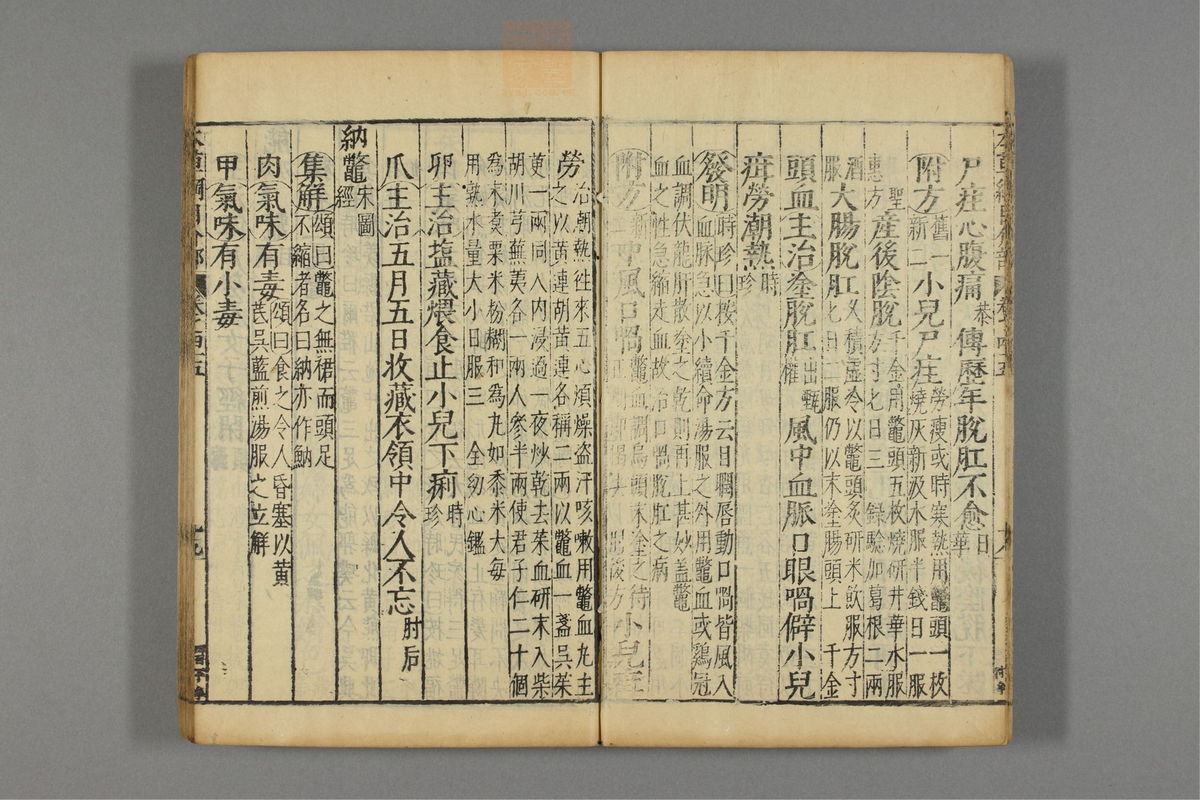 尸疰心腹痛恭傳歷年脫肛不愈日華
附方舊一新二小兒尸疰勞瘦或時寒熱用鼈頭一枚燒灰新汲水服半錢日一服
聖惠方產後陰脫千金用鼈頭五枚燒研井華水服方寸匕日三錄驗加葛根二兩
酒服大腸脫肛久積虛冷以鼈頭炙研米飲服方寸匕日二服仍以末塗腸頭上千金
頭血主治塗脫肛出甄權風中血脈口眼喎僻小兒
疳勞潮熱時珍
發明時珍曰按千金方云目瞤唇動口喎皆風入血脈急以小續命湯服之外用鼈血或雞冠
血調伏龍肝散塗之乾則再上甚妙盖鼈血之性急縮走血故治口喎脫肛之病
附方新二中風口喎鼈血調烏頭末塗之待小兒疳
勞治潮熱徃來五心煩燥盜汗咳嗽用鼈血丸主之以黃連胡黃連各稱二兩以鼈血一盞吳茱
萸一兩同入内浸過一夜炒乾去茱血研末入柴胡川芎蕪荑各一兩人參半兩使君子仁二十個
為末煑粟米粉糊和為丸如黍米大每用熟水量大小日服三全幼心鑑
卵主治塩藏煨食止小兒下痢時珍
爪主治五月五日收藏衣領中令人不忘肘后
納鼈宋圖經
集解頌曰鼈之無裙而頭足不縮者名曰納亦作魶
肉氣味有毒頌曰食之令人昏塞以黃芪吳藍煎湯服之立解
甲氣味有小毒